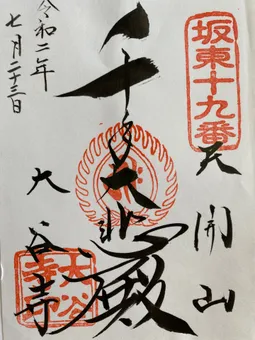 坂東十九番
天開山
千手大悲殿
大谷寺
令和二年
七月二十三日
大谷寺